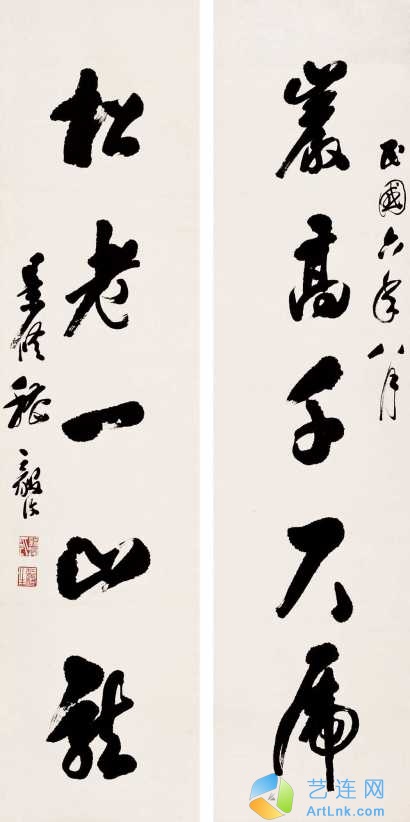 民國六年八月
巖高千尺虎
松老一山龍
艺连网
ArtLnk.com